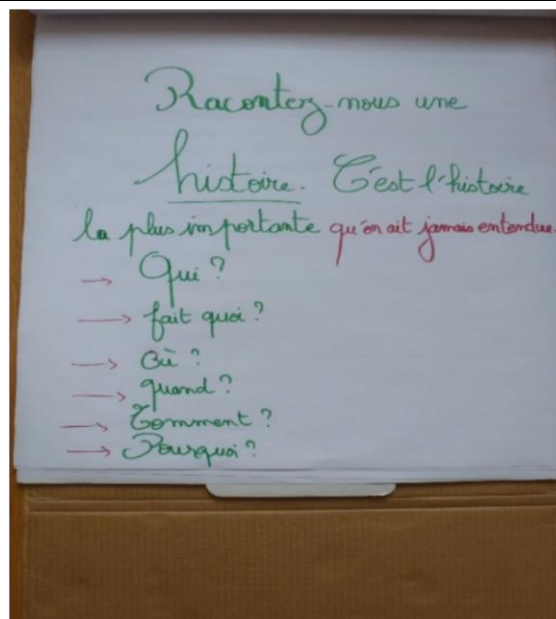 Racontez-nous une
histoire. C'est l'histoire
la plus importante qu'on ait jamais entendue.
→ Qui ?
→ fait quoi ?
→ Où ?
→ quand ?
→ Comment ?
→ Pourquoi ?